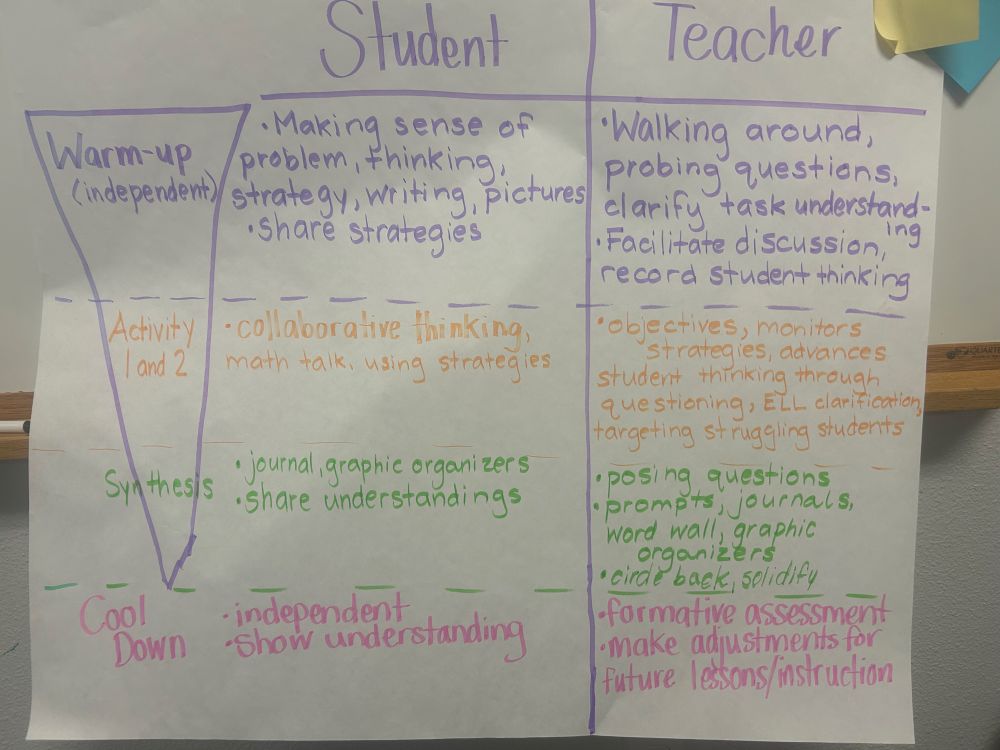 Student
Teacher
Warm-up
(independent)
• Making sense of
problem, thinking,
strategy, writing, pictures
• Share strategies
• Walking around,
probing questions,
clarify task understand-
ing
• Facilitate discussion,
record student thinking
Activity
1 and 2
• collaborative thinking,
math talk, using strategies
• objectives, monitors
strategies, advances
student thinking through
questioning, ELL clarification,
targeting struggling students
Synthesis
• journal, graphic organizers
• share understandings
• posing questions
• prompts, journals,
word wall, graphic
organizers
• circle back, solidify
Cool
Down
• independent
• Show understanding
• formative assessment
• make adjustments for
future lessons/instruction